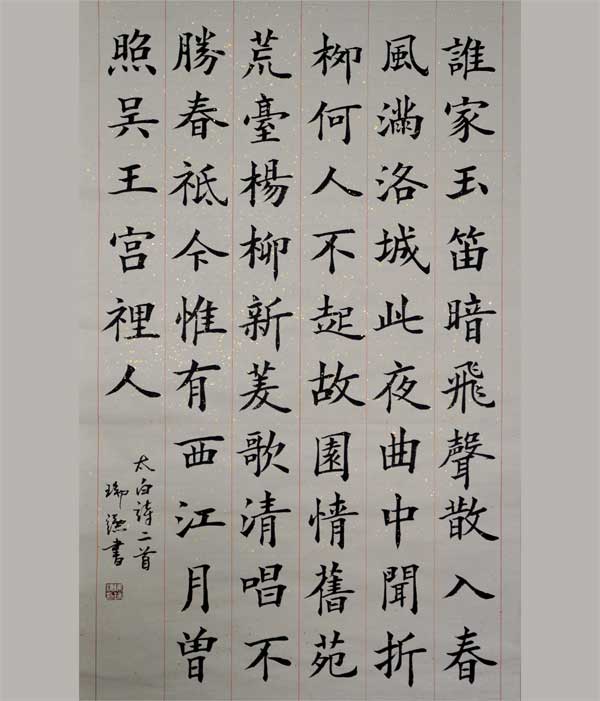 誰家玉笛暗飛聲散入春
風滿洛城此夜曲中聞折
柳何人不起故園情舊苑
荒臺楊柳新菱歌清唱不
勝春祗今惟有西江月曾
照吴王宮裡人
太白詩二首
瑞書